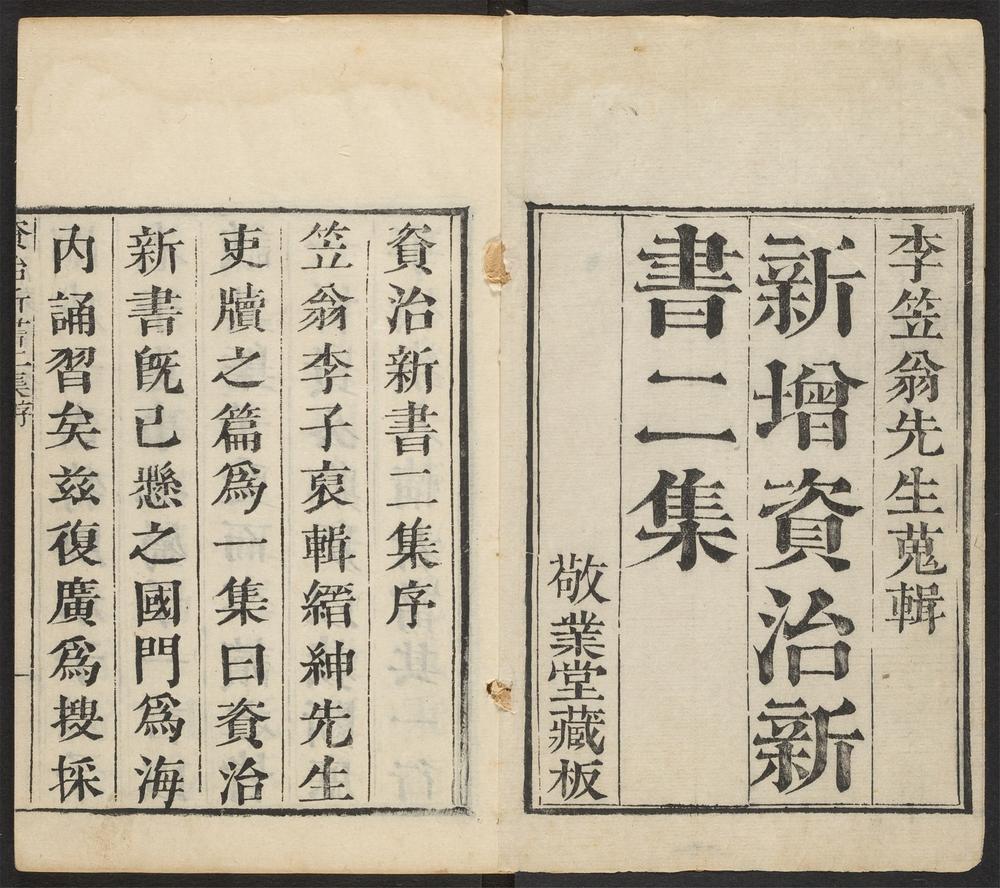 李笠翁先生蒐輯
新增資治新
書二集
敬業堂藏板
資治新書二集序
笠翁李子裒輯縉紳先生
吏牘之篇爲一集曰資治
新書既已懸之國門爲海
內誦習矣茲復廣爲搜採
資治新書二集序
一